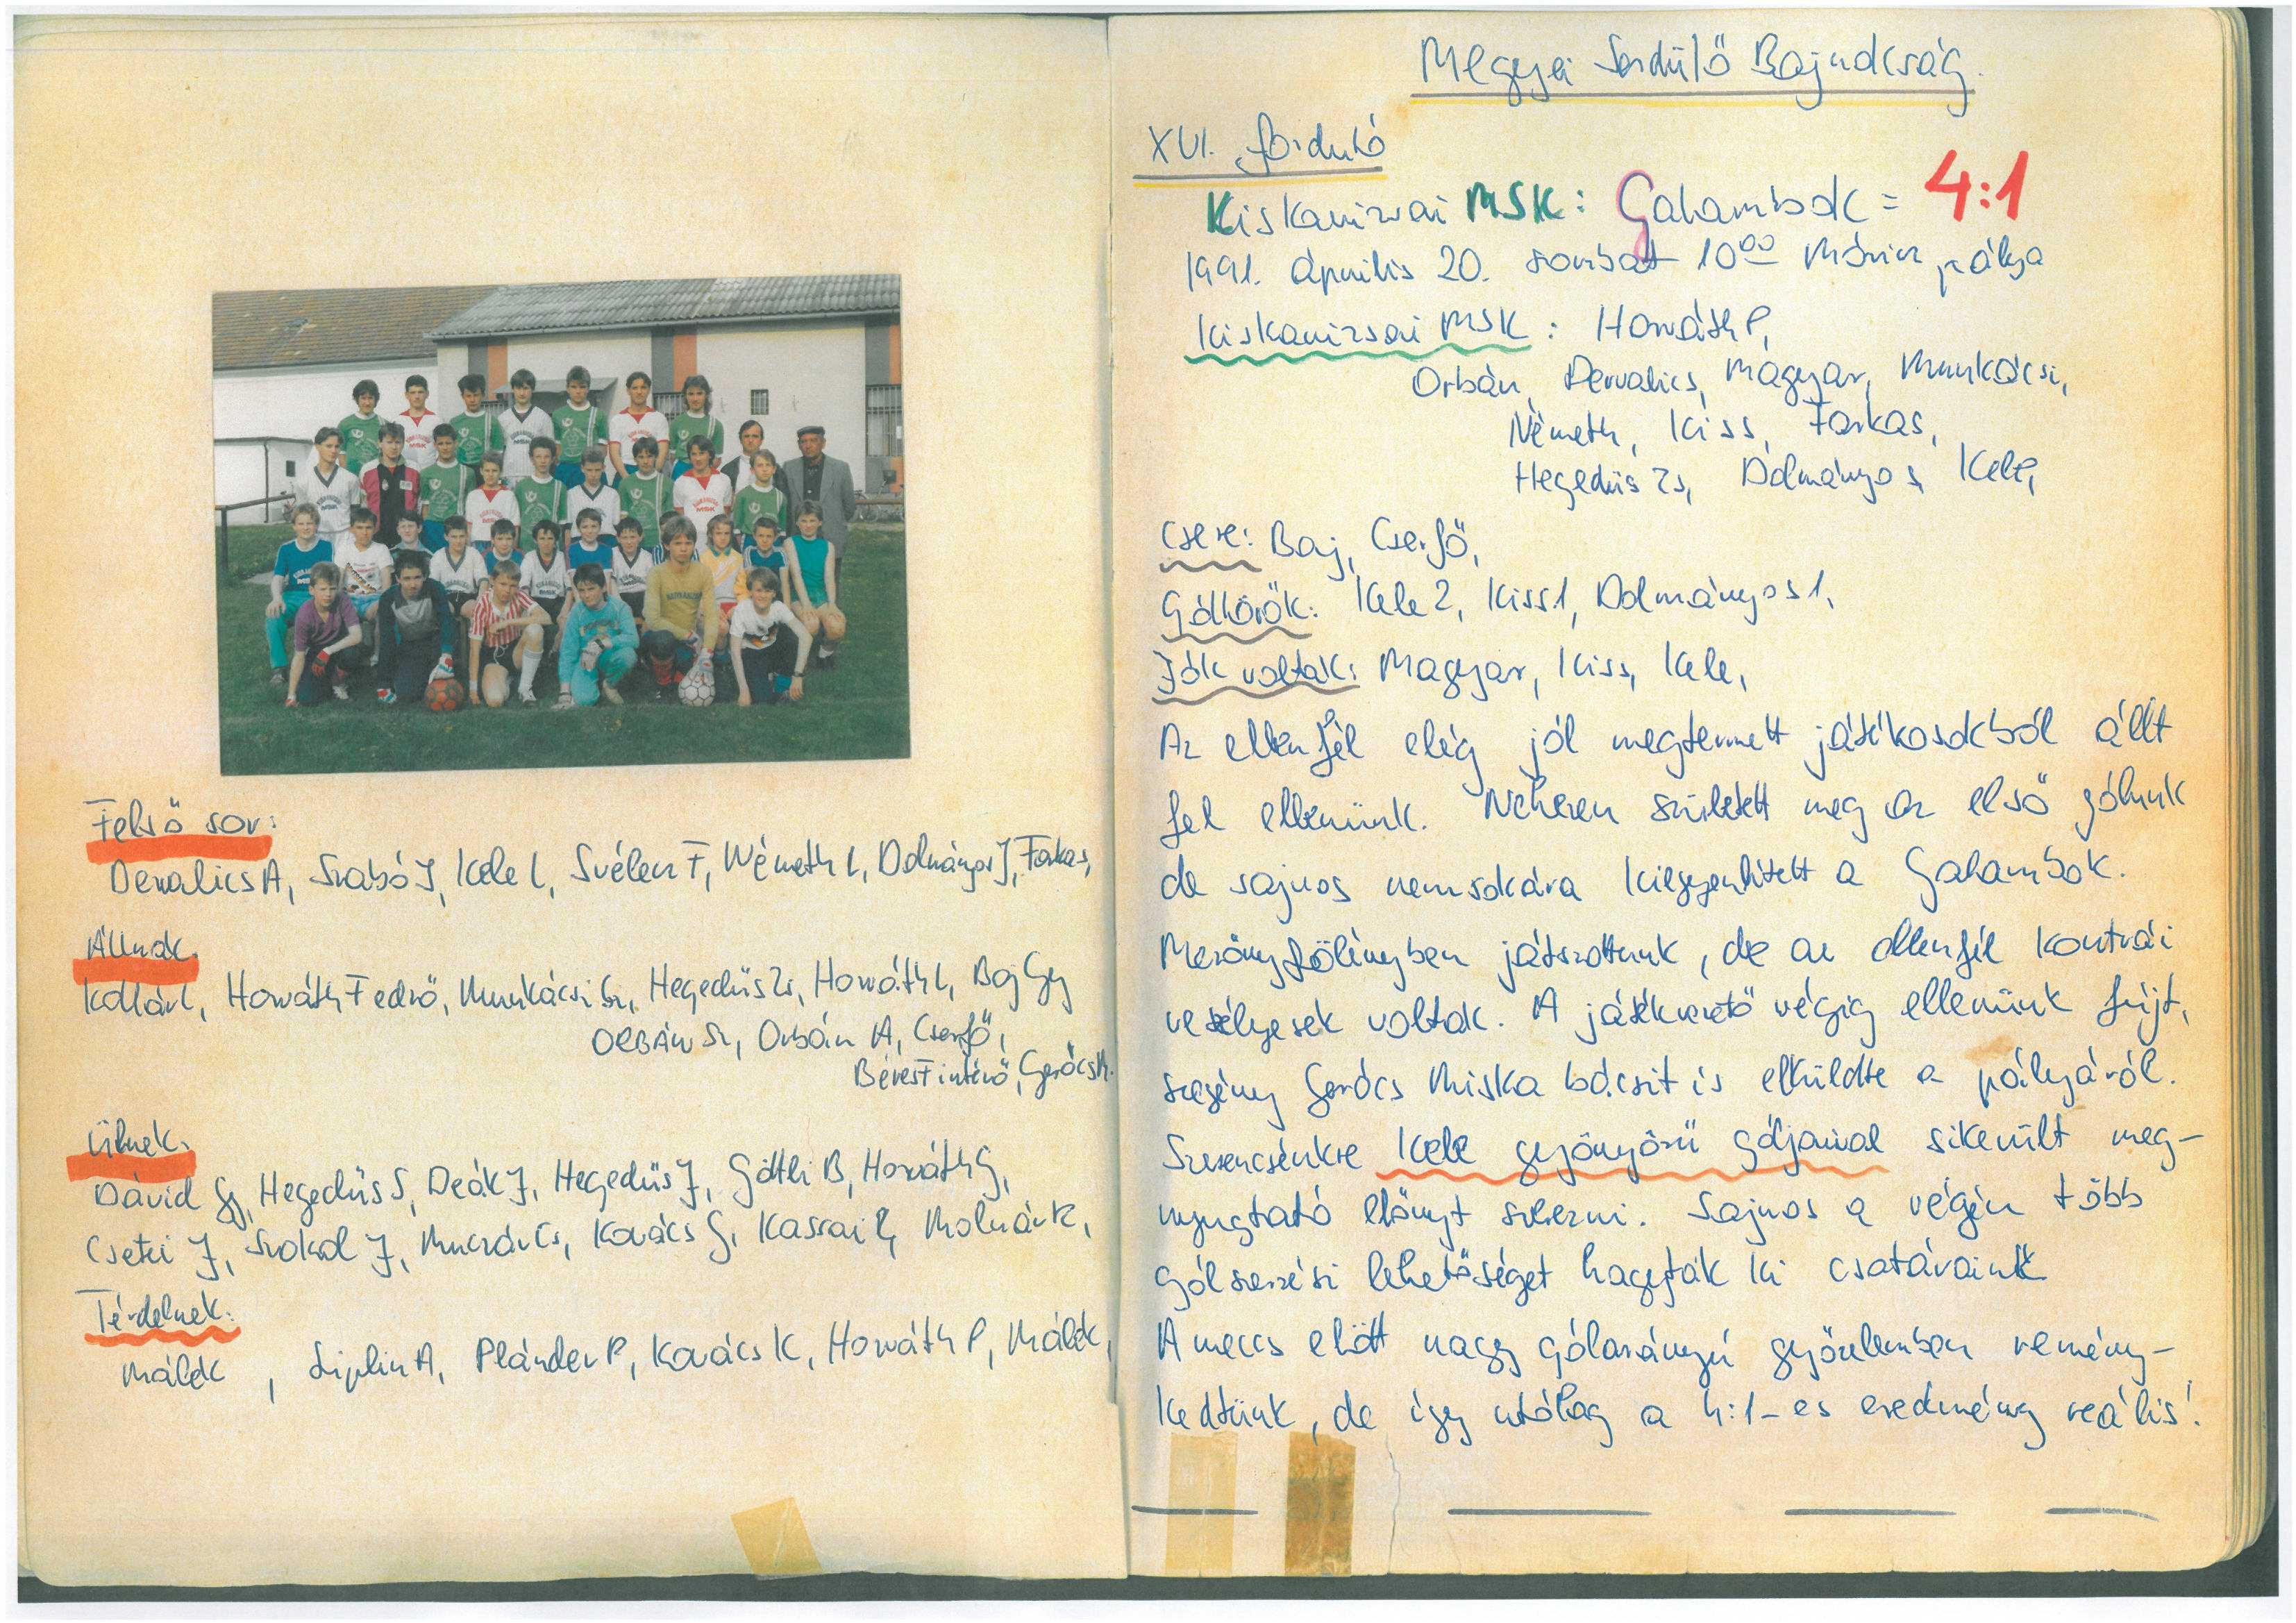 Felső sor:
Dervalics A, Szabó J, Kele L, Svélecz F, Németh L, Dolmányos J, Farkas,
Állnak.
Kollár L, Horváth F edző, Munkácsi Sz, Hegedüs Zs, Horváth L, Baj Gy
ORBÁN Sz, Orbán A, Cserfő,
Béres F intéző, Gerőcs M.
Ülnek.
Dávid Gy, Hegedüs S, Deák J, Hegedüs J, Göttli B, Horváth G,
Csetei J, Szokol J, Cs, Kovács G, Kassai R, Molnár K,
Térdelnek:
Málek, A, Plánder P, Kovács K, Horváth P, Málek,
Megyei Serdülő Bajnokság.
XVI. forduló
Kiskanizsai MSK: Galambok = 4:1
1991. április 20. szombat 10⁰⁰ Móricz pálya
Kiskanizsai MSK: Horváth P,
Orbán, Dervalics, Magyar, Munkácsi,
Németh, Kiss, Farkas,
Hegedüs Zs, Dolmányos, Kele,
Csere: Baj, Cserfő,
Góllövők: Kele 2, Kiss 1, Dolmányos 1,
Jók voltak: Magyar, Kiss, Kele,
Az ellenfél elég jól megtermett játékosokból állt
fel ellenünk. Nehezen született meg az első gólunk
de sajnos nemsokára kiegyenlített a Galambok.
Mezőnyfölényben játszottunk, de az ellenfél kontrái
veszélyesek voltak. A játékvezető végig ellenünk fújt,
szegény Gerőcs Miska bácsit is elküldte a pályáról.
Szerencsénkre Kele gyönyörű góljaival sikerült meg-
nyugtató előnyt szerezni. Sajnos a végén több
gólszerzési lehetőséget hagytak ki csatáraink
A meccs előtt nagy gólarányú győzelemben remény-
kedtünk, de így utólag a 4:1-es eredmény reális!